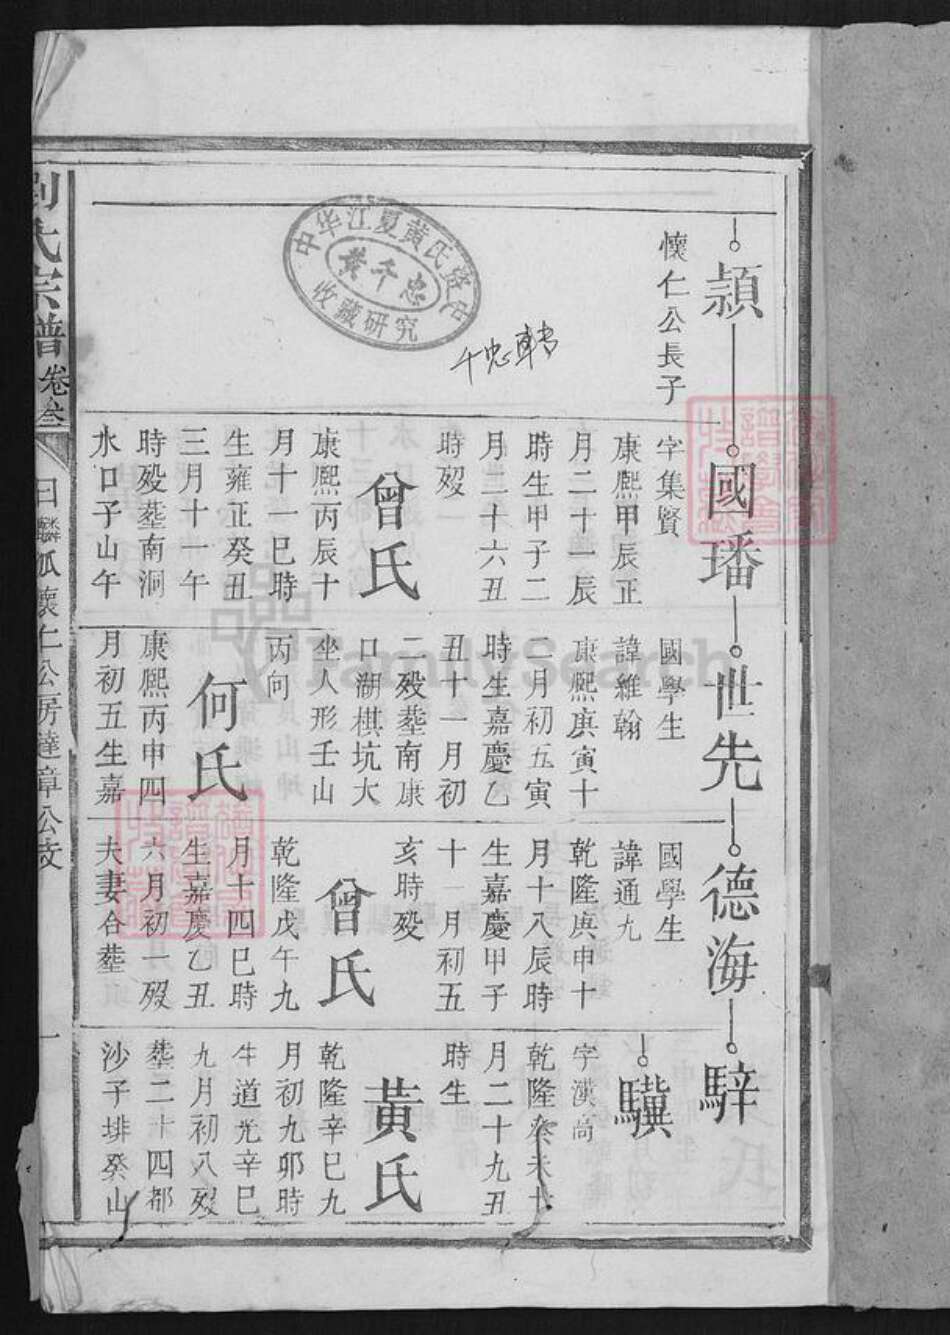 穎
懷仁公長子
國璠
字集賢
康熙甲辰正
月二十一辰
時生甲子二
月二十六丑
時歿
曾氏
康熙丙辰十
月十一巳時
生雍正癸丑
三月十一午
時歿塟南洞
水口子山午
世先
國學生
諱維翰
康熙庚寅十
二月初五寅
時生嘉慶乙
丑十一月初
二歿塟南康
口湖棋坑大
坐人形壬山
丙向
何氏
康熙丙申四
月初五生嘉
德海
國學生
諱通九
乾隆庚申十
月十八辰時
生嘉慶甲子
十一月初五
亥時歿
曾氏
乾隆戊午九
月十四巳時
生嘉慶乙丑
六月初一歿
夫妻合塟
騂
驥
字漢尚
乾隆癸未十
月二十九丑
時生
黃氏
乾隆辛巳九
月初九卯時
生道光辛巳
九月初八歿
塟二十四都
沙子埂癸山
劉氏宗譜
卷叁
懷仁公房達章公支
一
中华江夏黄氏
黄千忠
收藏研究
FamilySearch